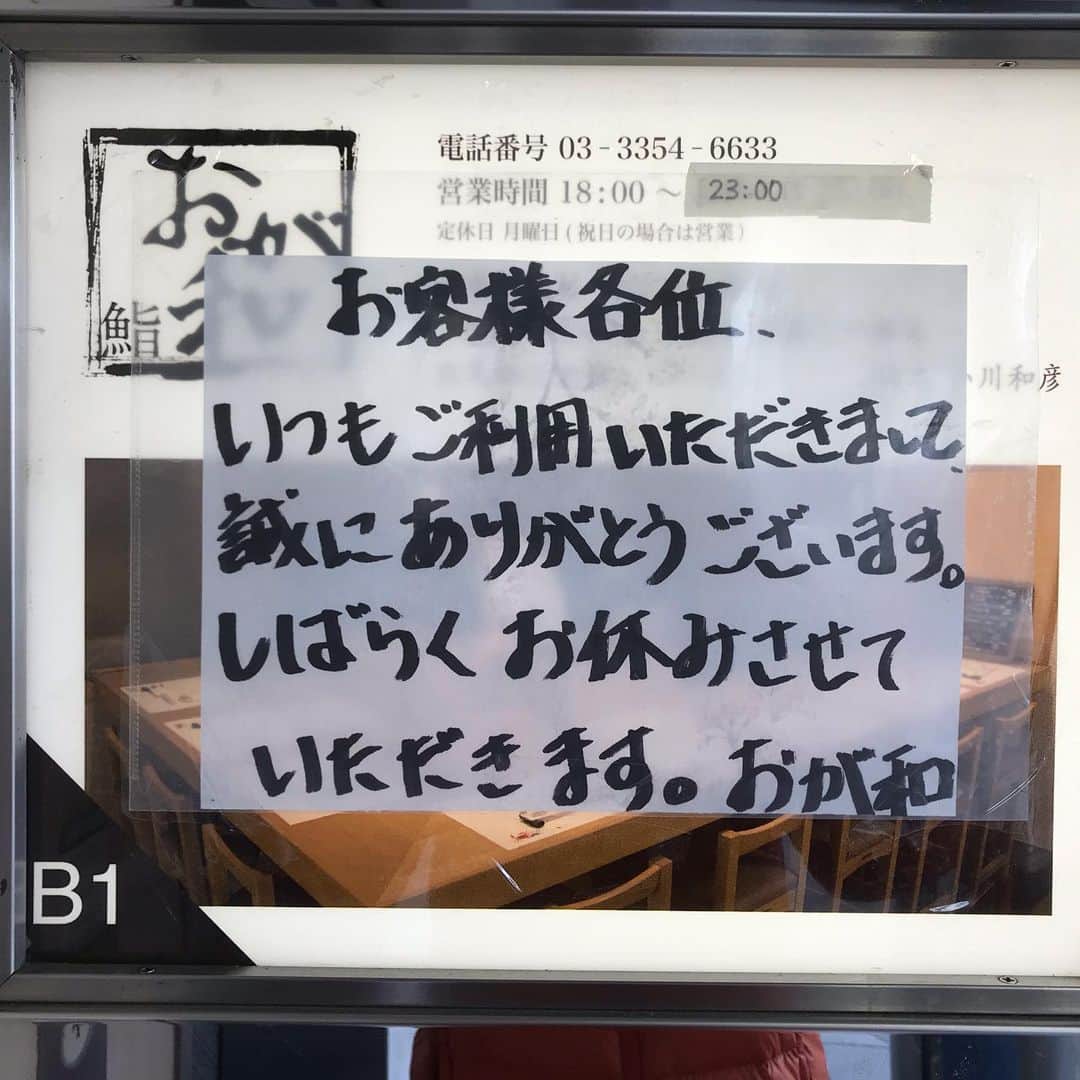 おが
鮨
電話番号 03-3354-6633
営業時間 18:00 ～ 23:00
定休日 月曜日 (祝日の場合は営業)
川和彦
お客様各位、
いつもご利用いただきまして、
誠にありがとうございます。
しばらくお休みさせて
いただきます。おが和
B1